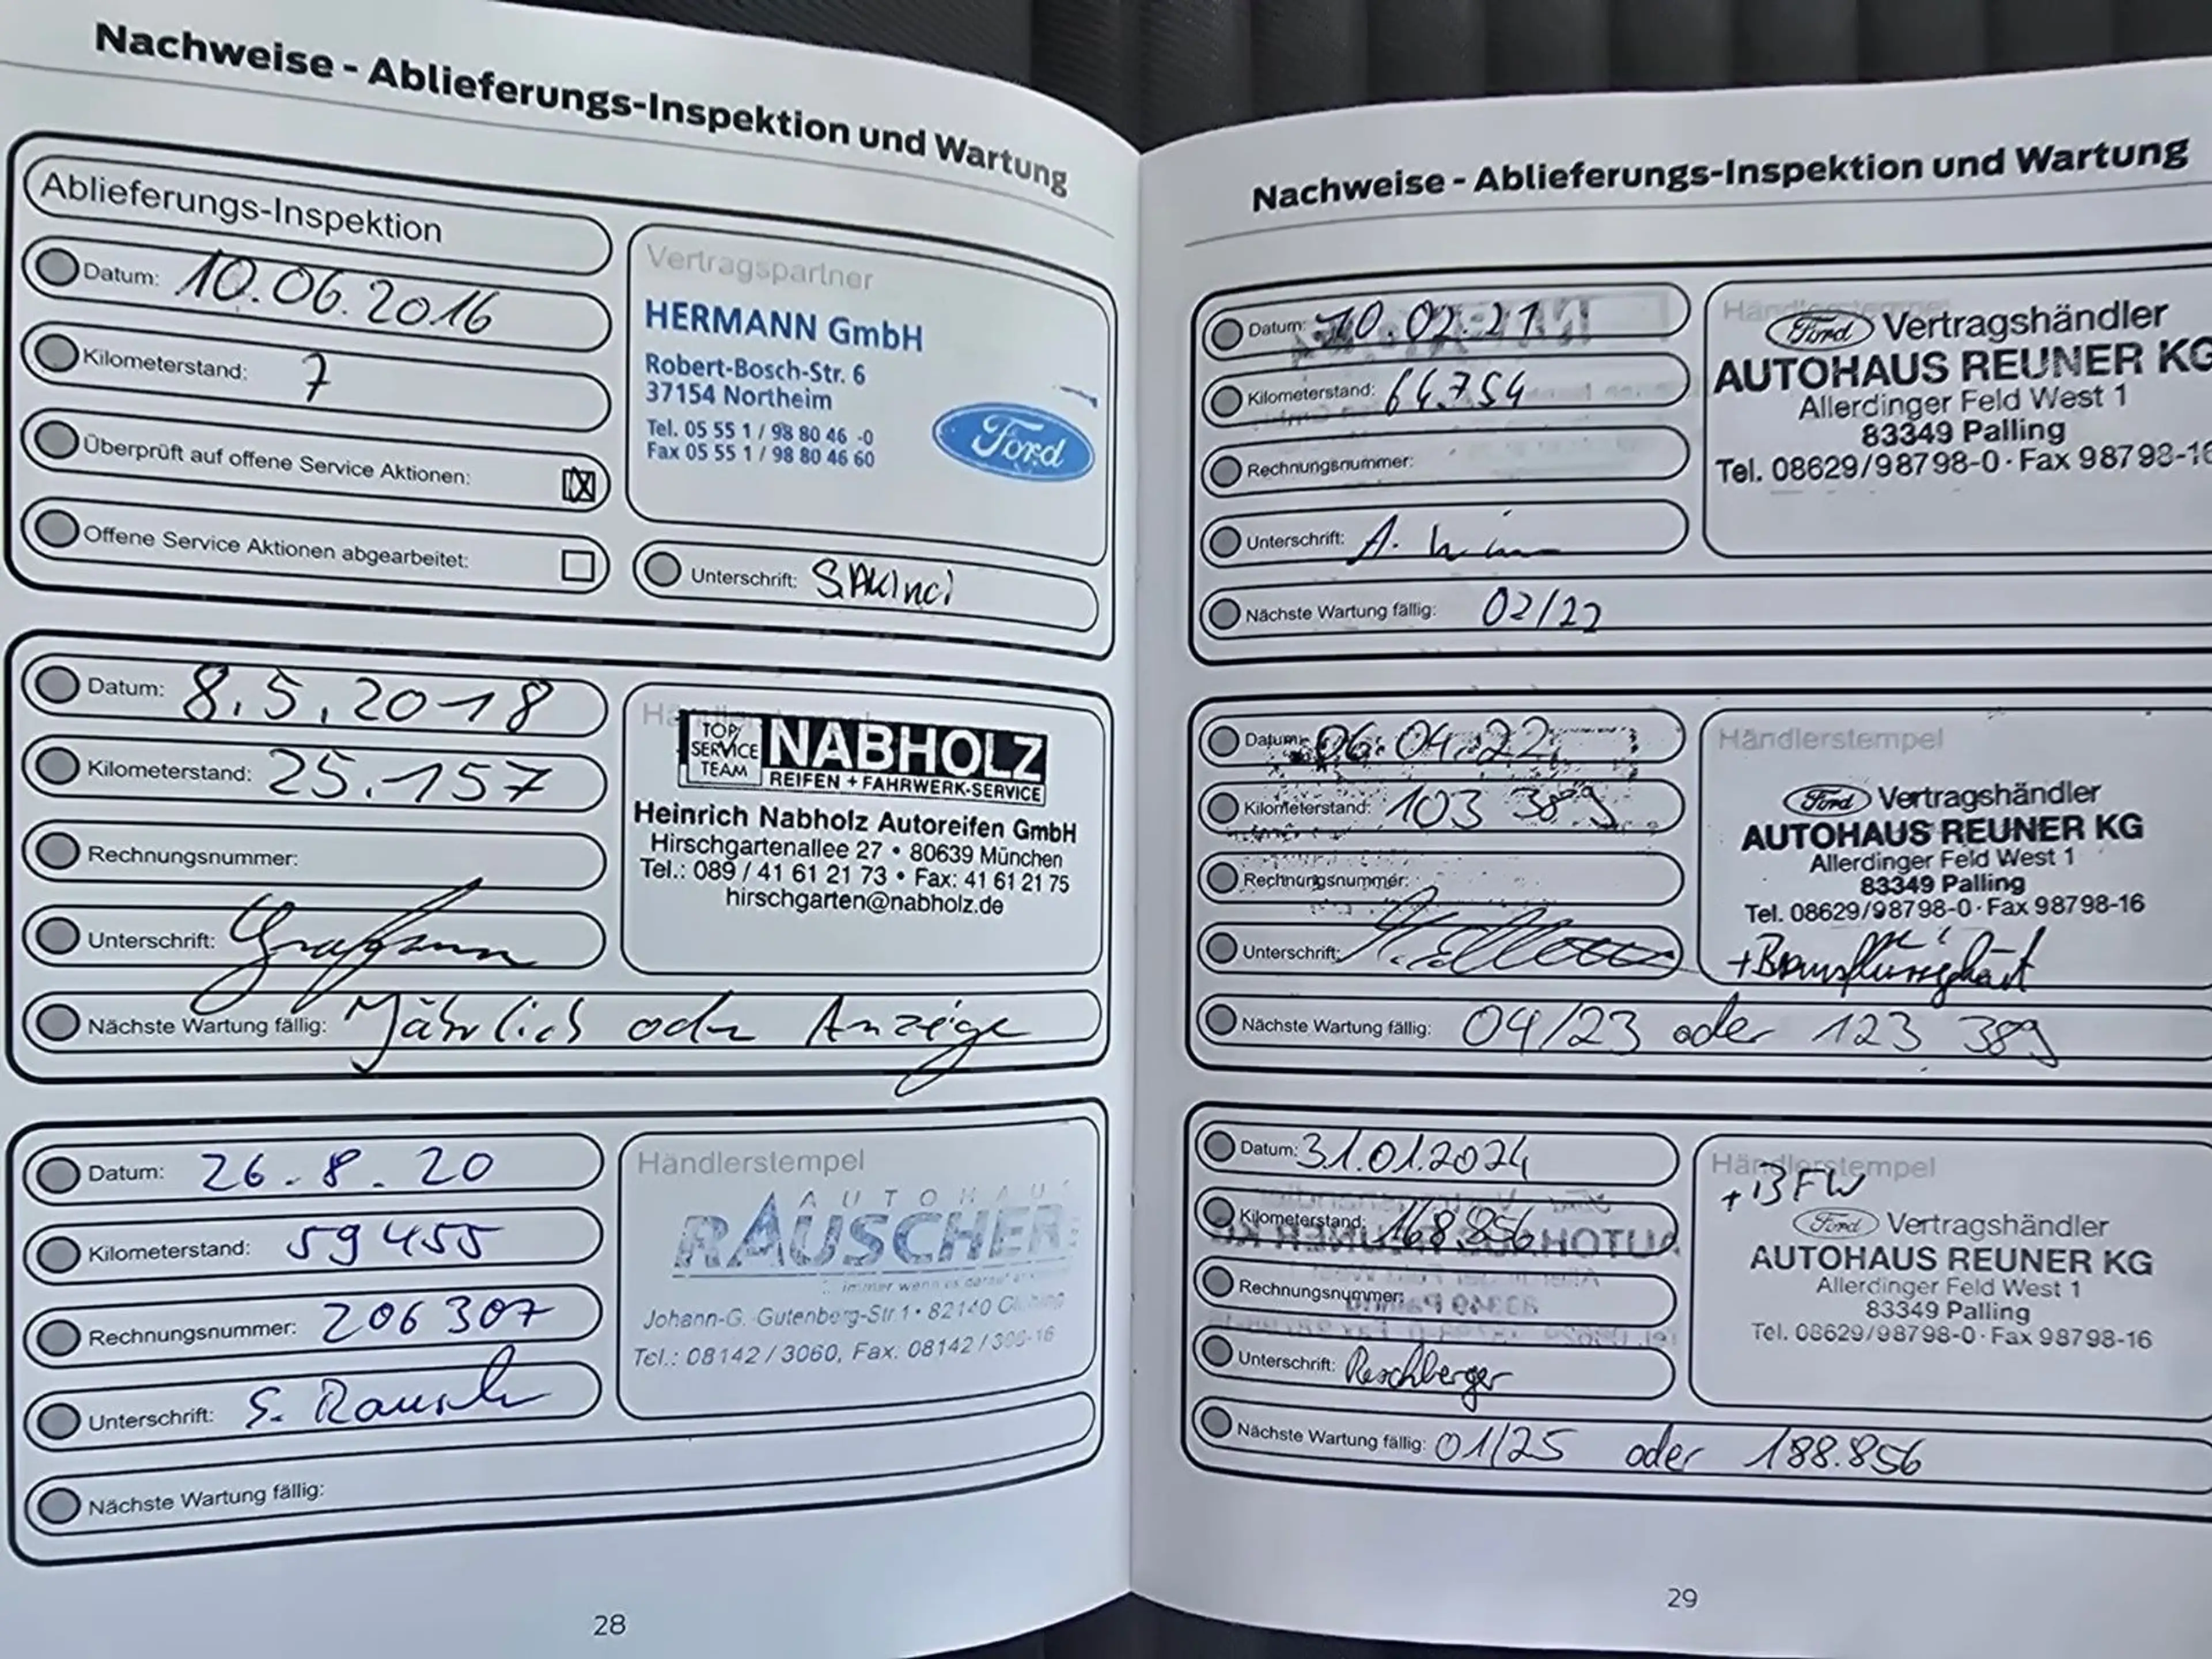 Nachweise - Ablieferungs-Inspektion und Wartung
Ablieferungs-Inspektion
Datum: 10.06.2016
Kilometerstand: 7
Überprüft auf offene Service Aktionen:
Offene Service Aktionen abgearbeitet:
Vertragspartner
HERMANN GmbH
Robert-Bosch-Str. 6
37154 Northeim
Tel. 05 55 1 / 98 80 46 -0
Fax 05 55 1 / 98 80 46 60
Ford
Unterschrift:
Datum: 8.5.2018
Kilometerstand: 25.157
Rechnungsnummer:
Unterschrift:
Nächste Wartung fällig: Jährlich oder Anzeige
TOP
SERVICE
TEAM
NABHOLZ
REIFEN + FAHRWERK-SERVICE
Heinrich Nabholz Autoreifen GmbH
Hirschgartenallee 27 • 80639 München
Tel.: 089 / 41 61 21 73 • Fax: 41 61 21 75
hirschgarten@nabholz.de
Datum: 26.8.20
Kilometerstand: 59455
Rechnungsnummer: 206307
Unterschrift: S.
Nächste Wartung fällig:
Händlerstempel
AUTOHAUS
RAUSCHER
immer wenn es
Johann-G.-Gutenberg-Str.1 • 82140
Tel.: 08142 / 3060, Fax: 08142 /
28
Nachweise - Ablieferungs-Inspektion und Wartung
Datum: 10.02.21
Kilometerstand: 64.754
Rechnungsnummer:
Unterschrift: A.
Nächste Wartung fällig: 02/22
Ford Vertragshändler
AUTOHAUS REUNER KG
Allerdinger Feld West 1
83349 Palling
Tel. 08629/98798-0 · Fax 98798-16
Datum: 06.04.22
Kilometerstand: 103 389
Rechnungsnummer:
Unterschrift:
Nächste Wartung fällig: 04/23 oder 123 389
Händlerstempel
Ford Vertragshändler
AUTOHAUS REUNER KG
Allerdinger Feld West 1
83349 Palling
Tel. 08629/98798-0 · Fax 98798-16
Datum: 31.01.2024
Kilometerstand: 168.856
Rechnungsnummer:
Unterschrift: Reschberger
Nächste Wartung fällig: 01/25 oder 188.856
Händlerstempel
+ BFW
Ford Vertragshändler
AUTOHAUS REUNER KG
Allerdinger Feld West 1
83349 Palling
Tel. 08629/98798-0 · Fax 98798-16
29